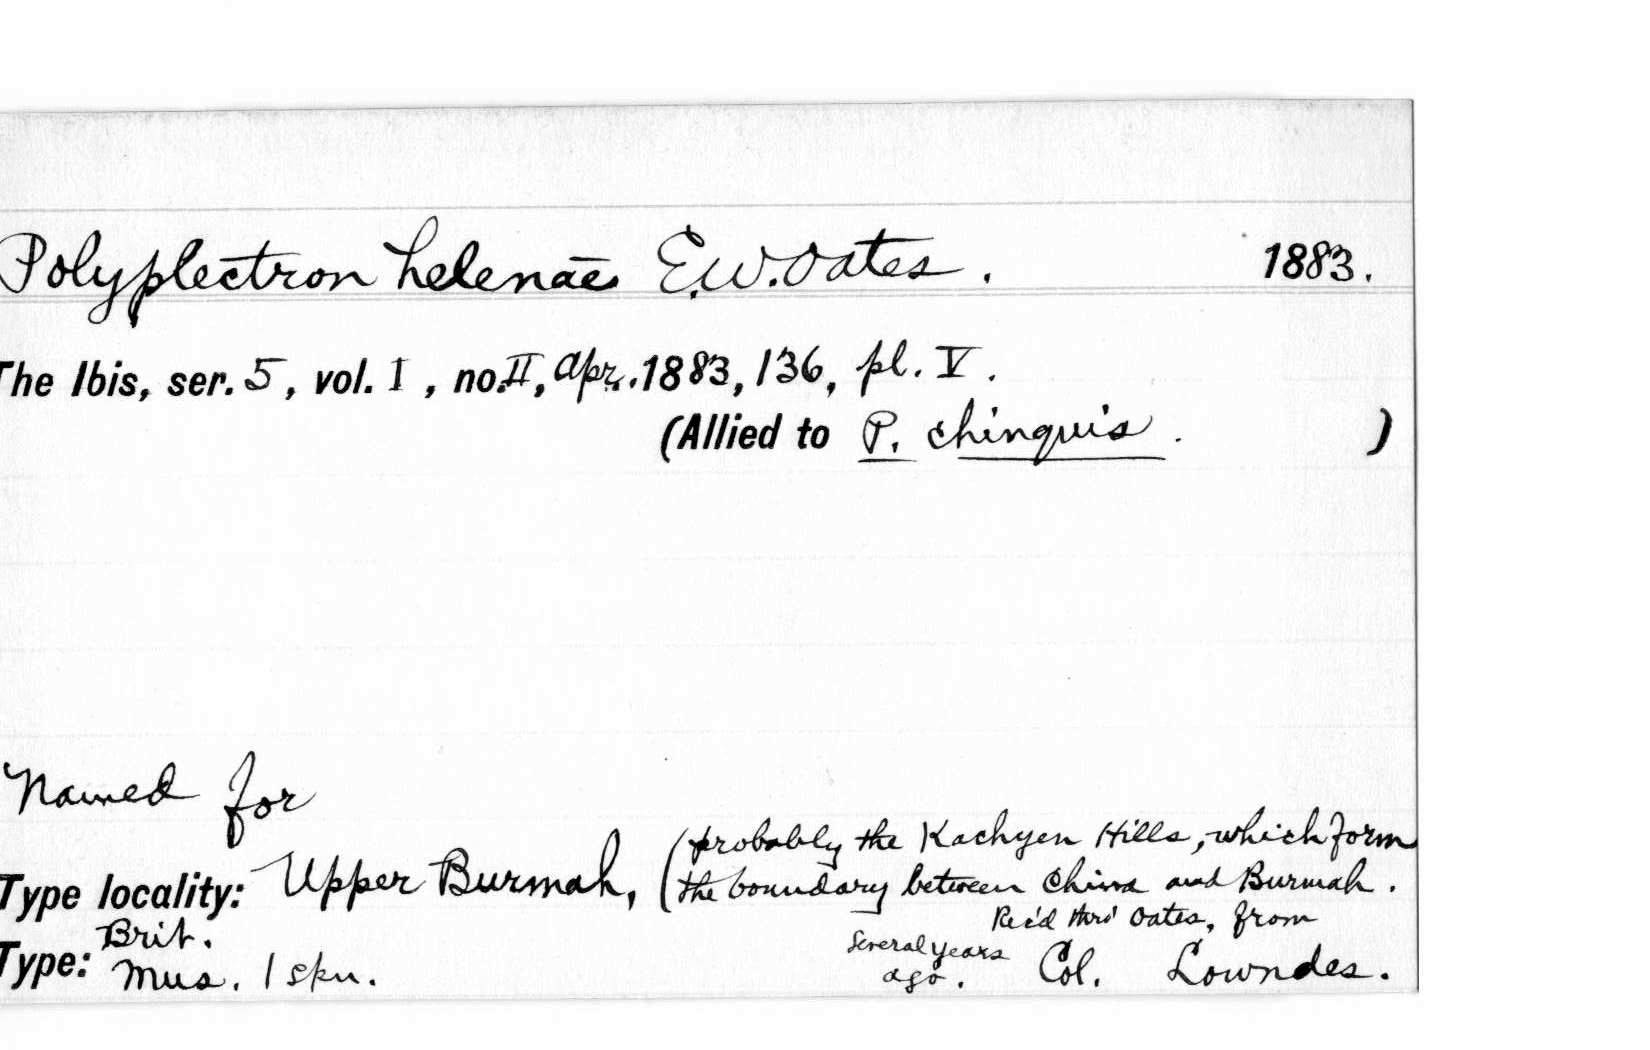 Polyplectron helenae E.W. Oates. 1883.
The Ibis, ser. 5, vol. I, no. II, Apr. 1883, 136, pl. V.
(Allied to P. chinquis. )
Named for
(probably the Kachyen Hills, which form
Type locality: Upper Burmah, the boundary between China and Burmah.
Rec'd thro' Oates, from
Type: Brit. Mus. 1 skn. several years ago. Col. Lowndes.